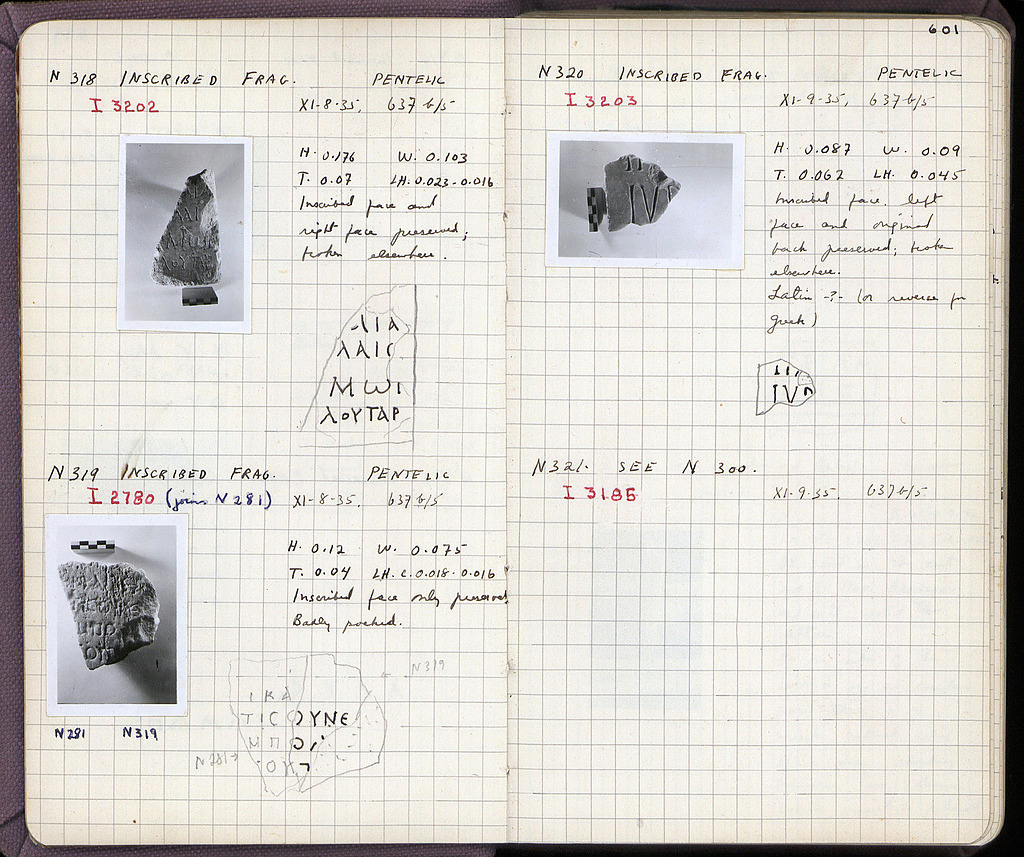 N 318 INSCRIBED FRAG. PENTELIC
I 3202 XI-8-35, 637 b/5
H. 0.176 W. 0.103
T. 0.07 LH. 0.023-0.016
Inscribed face and
right face preserved;
broken elsewhere.
ΛΙΑ
ΛΑΙC
ΜωΙ
ΛΟΥΤΑΡ
N 319 INSCRIBED FRAG. PENTELIC
I 2780 (joins N 281) XI-8-35, 637 b/5
H. 0.12 W. 0.075
T. 0.04 LH. c. 0.018-0.016
Inscribed face only preserved.
Badly pocked.
N319
ΙΚΑ
ΤΙCΟΥΝΕ
ΜΠΟ
N281
ΟΚ
N281 N319
601
N 320 INSCRIBED FRAG. PENTELIC
I 3203 XI-9-35, 637 b/5
H. 0.087 W. 0.09
T. 0.062 LH. 0.045
Inscribed face, left
face and original
back preserved; broken
elsewhere.
Latin -?- (or reverse for
Greek)
IV
N 321. SEE N 300.
I 3186 XI-9-35, 637 b/5